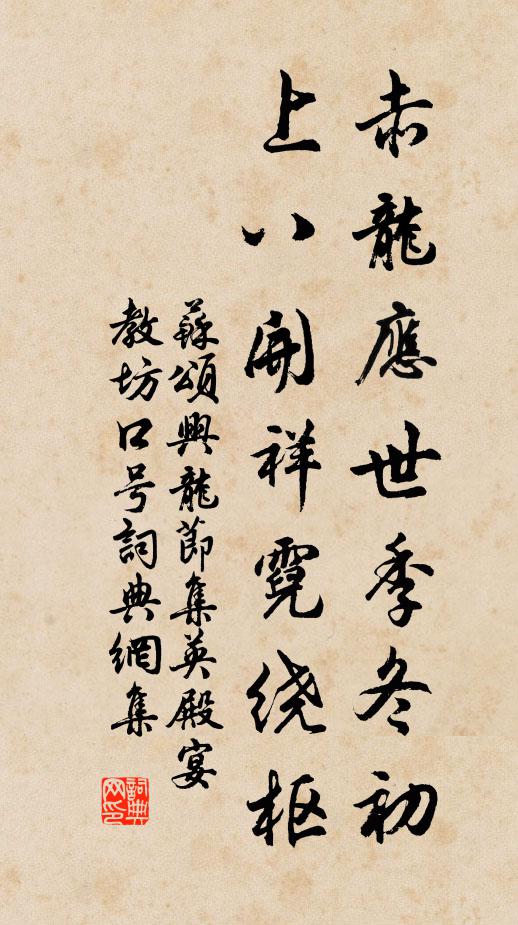 赤龍應世季冬初
上八開祥霓绕枢
蘇頌興龍節集英殿宴
教坊口号詞典網集
詞典网印